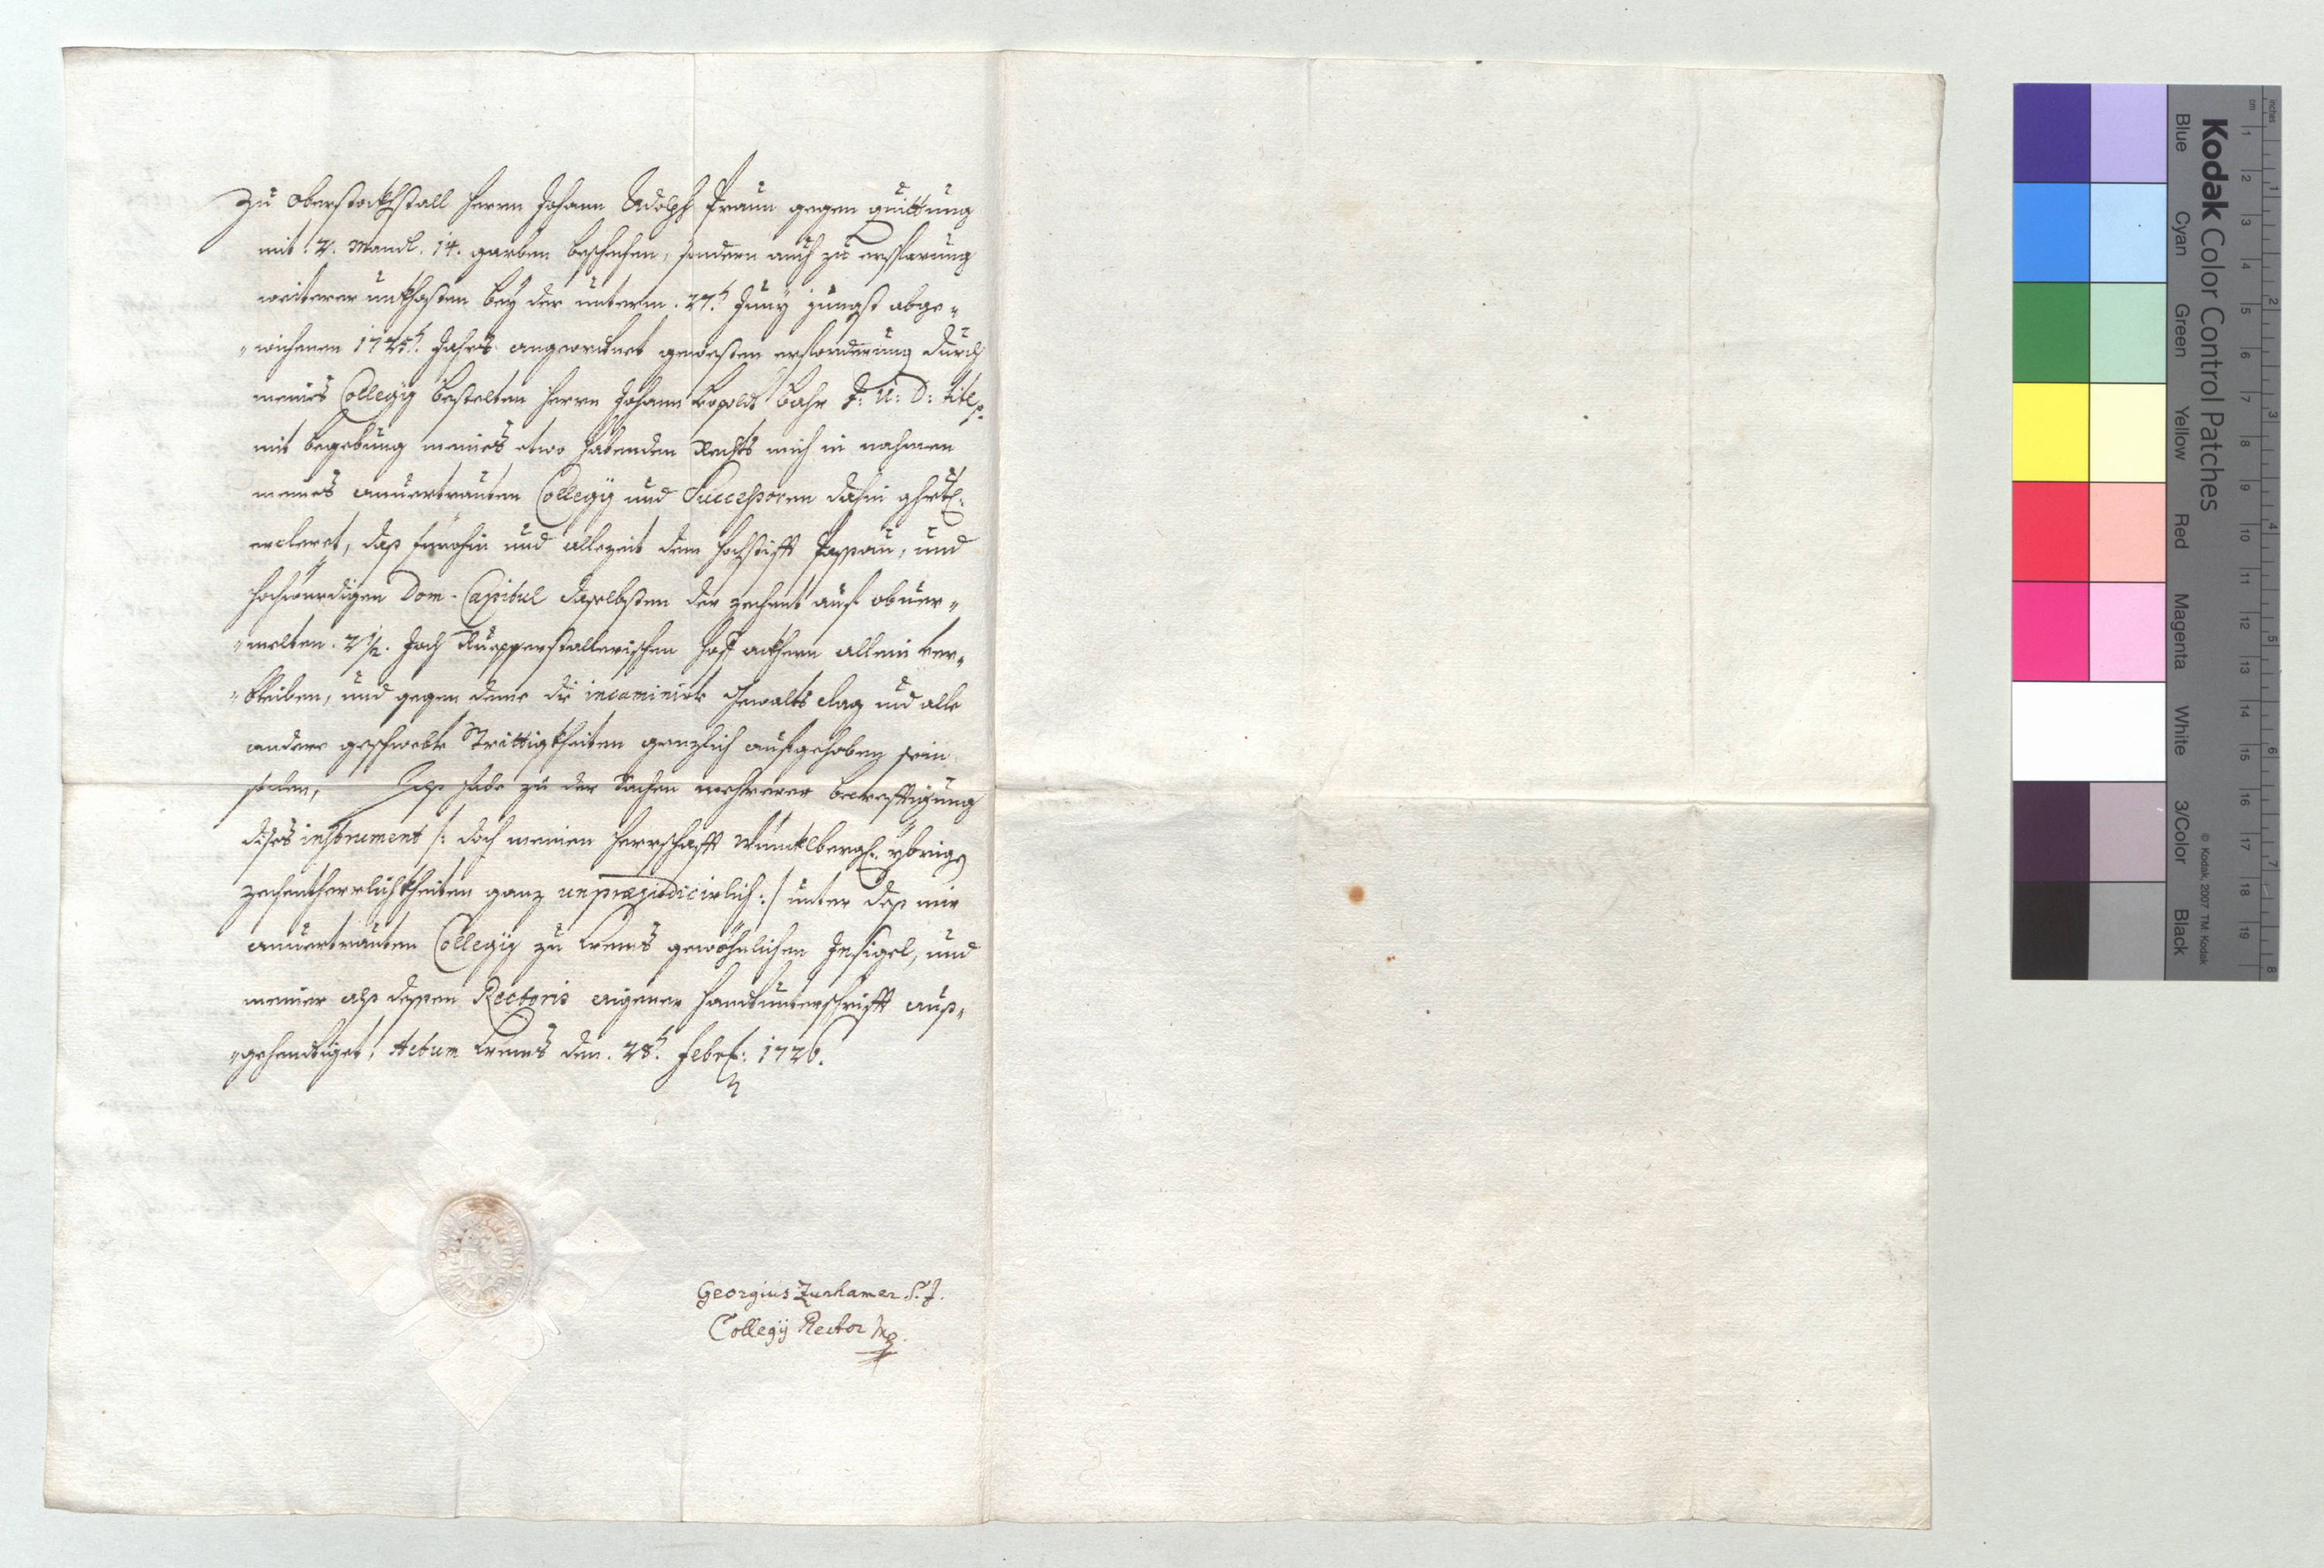 Zu Oberstockhstall Herrn Johann Adolph Praun gegen quittung
mit. 2. Mandl. 14. garben beschehen, sondern auch zu ersparung
weiterer unkhosten bey der unterm. 27.t Juny jüngst abge„
„wichenen 1725.t Jahrs angeordnet gewesten erforderung durch
meines Collegÿ bestelten Herrn Johann Leopold Bahr J: U: D: titl
mit begebung meines etwo habenden Rechts mich in nahmen
meines anuertrauten Collegÿ und Successoren dahin
ercleret, das fürohin und allezeit dem Hochstifft Passau, und
Hochwürdigen Dom-Capitul daselbsten der zechent auf obuer„
„melten. 2 1/2. Joch Ruepperstallerischen Hoff ackhern allein ver„
„bleiben, und gegen deme die incaminirte Gewalts clag und alle
andere geschwebte Strittigkheiten genzlich aufgehoben sein
sollen, Alß habe zu der sachen mehrerer becrefftigung
dises instrument /: doch meiner Herrschafft Wünklbergl: ybrigen
zechentherrlichkheiten ganz unpræjudicirlich :/ unter deß mir
anuertrauten Collegÿ zu Crembs gewöhnlichen Insigel, und
meiner alß dessen Rectoris aigener Handtunterschrifft auß„
„gehendtiget, Actum Crembs den. 28.t Febr: 1726.
Georgius Zurhamer S. J.
Collegÿ Rector mp.
Kodak Color Control Patches
Blue Cyan Green Yellow Red Magenta White 3/Color Black
© Kodak, 2007 TM: Kodak
inches 1 2 3 4 5 6 7 8
cm 1 2 3 4 5 6 7 8 9 10 11 12 13 14 15 16 17 18 19